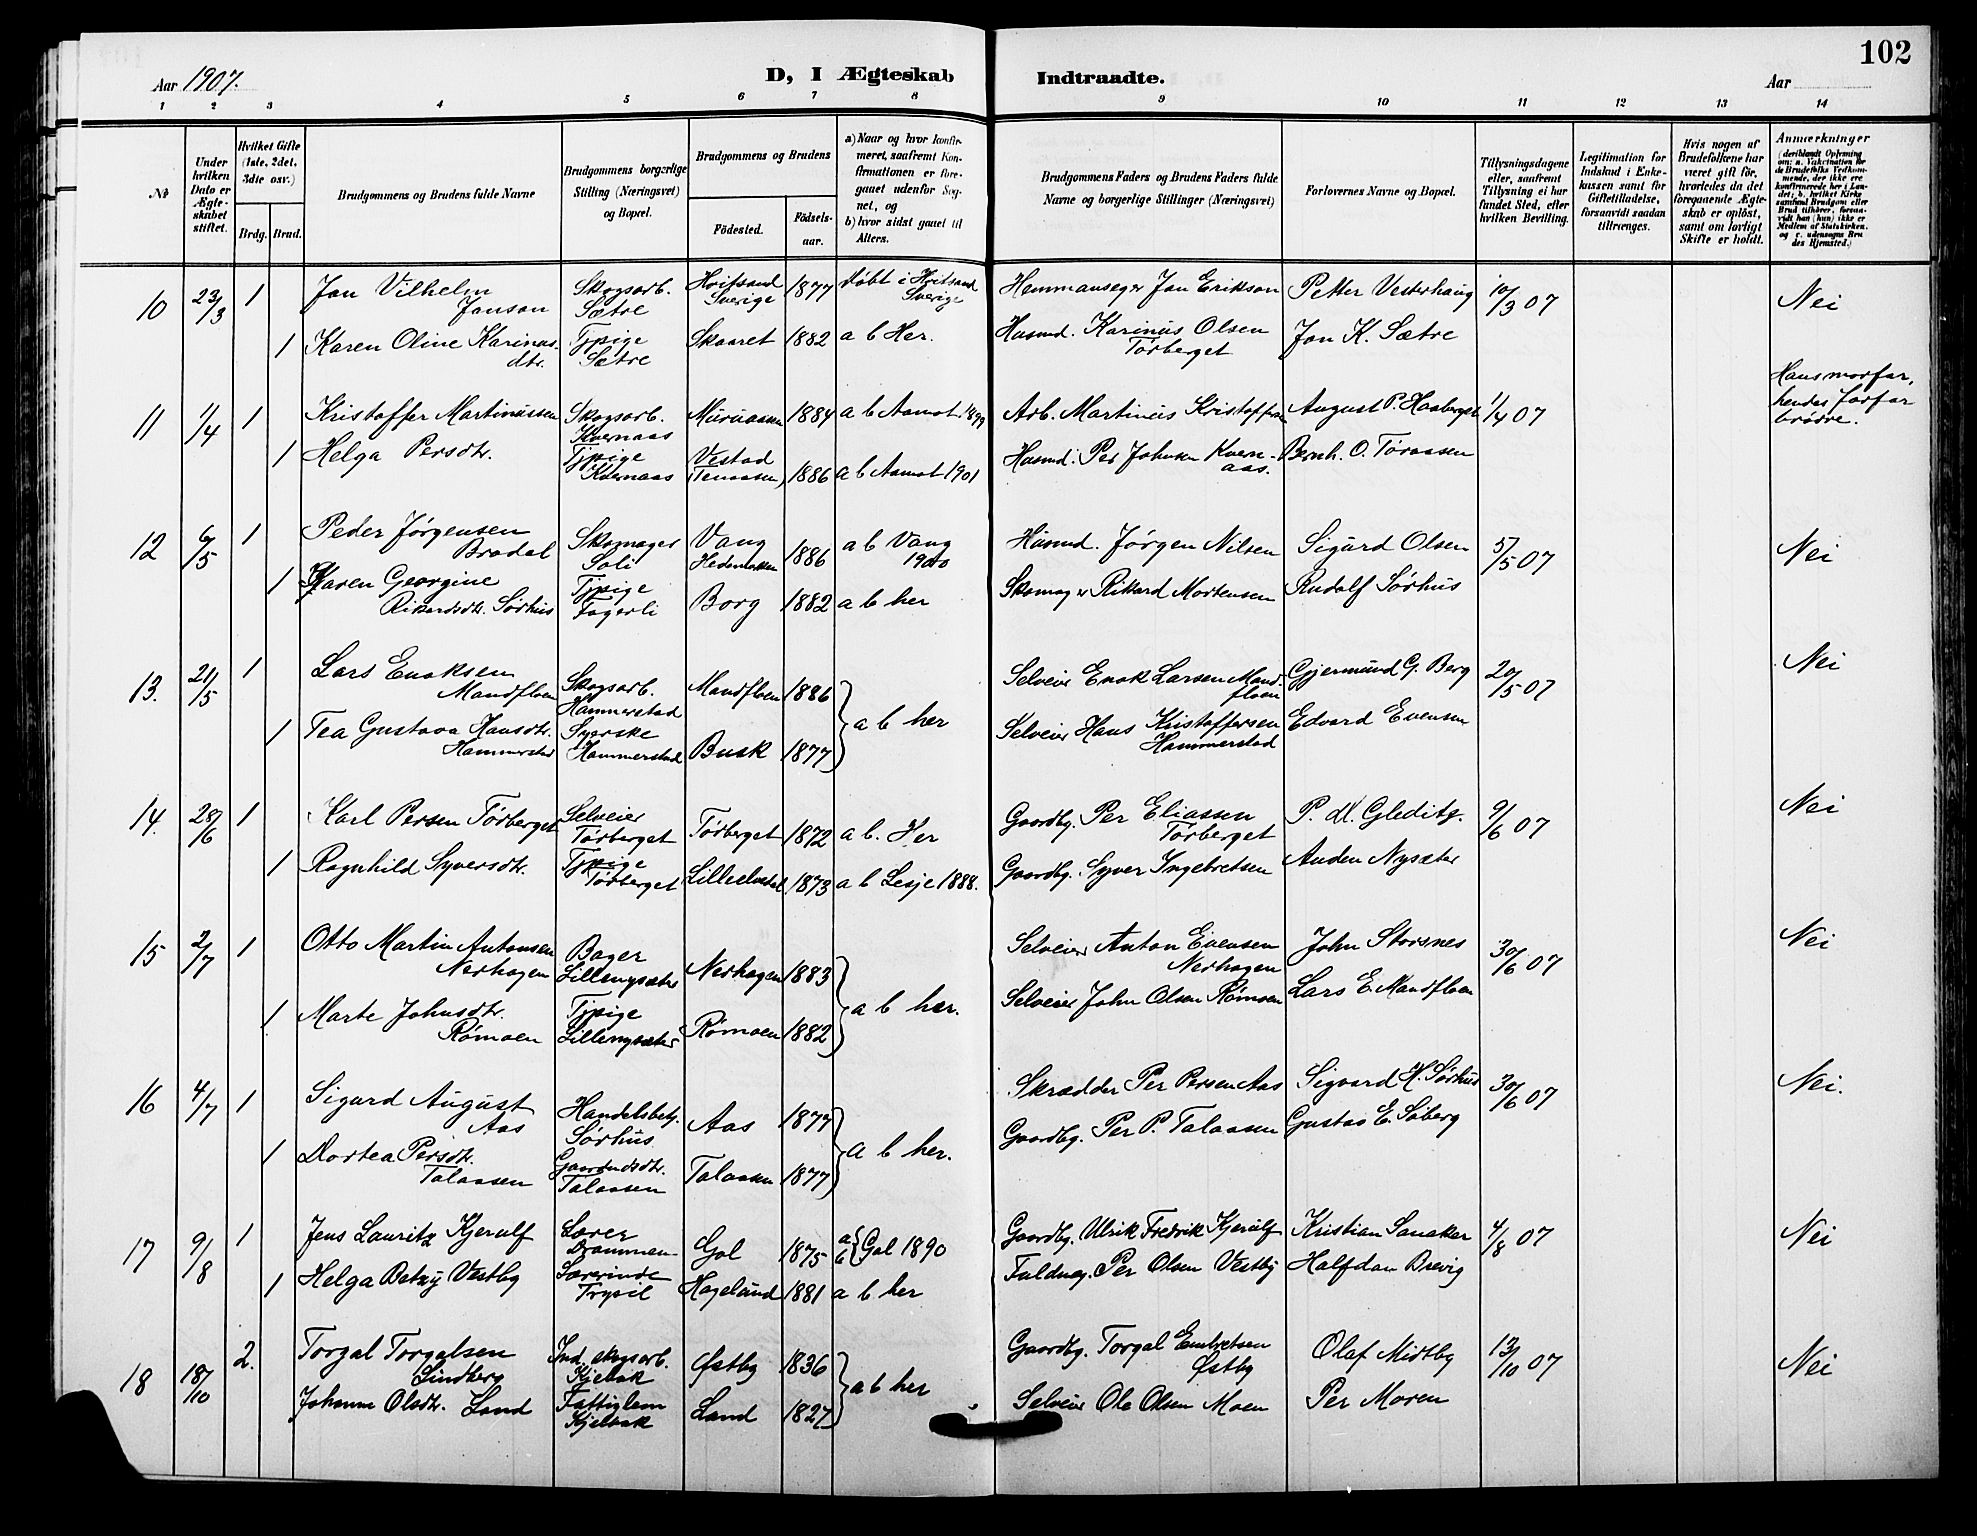 102
Aar 1907.
D, I Ægteskab
Indtraadte.
Aar
1 2 3 4 5 6 7 8 9 10 11 12 13 14
No
Under hvilken Dato er Ægteskabet stiftet.
Hvilket Gifte (1ste, 2det, 3die osv.)
Brdg. Brud.
Brudgommens og Brudens fulde Navne
Brudgommens borgerlige Stilling (Næringsvei) og Bopæl.
Brudgommens og Brudens
Fødested.
Fødselsaar.
a) Naar og hvor konfirmeret, saafremt Konfirmationen er foregaaet udenfor Sognet, og
b) hvor sidst gaaet til Alters.
Brudgommens Faders og Brudens Faders fulde Navne og borgerlige Stillinger (Næringsvei)
Forlovernes Navne og Bopæl.
Tillysningsdagene eller, saafremt Tillysning ei har fundet Sted, efter hvilken Bevilling.
Legitimation for Indskud i Enkekassen samt for Giftetilladelse, forsaavidt saadan tiltrænges.
Hvis nogen af Brudefolkene har været gift før, hvorledes da det foregaaende Ægteskab er opløst, samt om lovligt Skifte er holdt.
Anmærkninger
(deriblandt Oplysning om: a. Vakcination for de Brudefolks Vedkommende, der ikke ere konfirmerede her i Landet; b. hvilket Kirkesamfund Brudgom eller Brud tilhører, forsaavidt han (hun) ikke er Medlem af Statskirken, og c. udensogns Brudes Hjemsted.)
10 23/3 1 Jan Vilhelm Janson Skogsarb. Sætre Hvitsand Sverige 1877 døbt i Hvitsand Sverige Hemmanseger Jan Erikson Petter Vesterhaug 10/3 07 Nei
1 Karen Oline Karinusdtr. Tjpige Sætre Skaaret 1882 a b Her. Husmd. Karinus Olsen Tørberget Jon K. Sætre
11 1/4 1 Kristoffer Martinussen Skogsarb. Kvernaas Muruaasen 1884 a b Aamot 1899 Arb. Martinus Kristoffersen August P. Haaberget 1/4 07 Hans morfar, hendes farfar brødre.
1 Helga Persdtr. Tjpige Kvernaas Vestad (Tenaasen) 1886 a b Aamot 1901 Husmd. Per Johnsen Kvernaas. Bernh. O. Tøraasen
12 6/5 1 Peder Jørgensen Bradal Skomager Soli Vang Hedemarken 1886 a b Vang 1900 Husmd. Jørgen Nilsen Sigurd Olsen 5/5 07 Nei
1 Karen Georgine Rikardsdtr. Sørhus Tjpige Fagerli Borg 1882 a b her Skomager Rikard Mortensen Rudolf Sørhus
13. 21/5 1 Lars Enoksen Mandfloen Skogsarb. Hammerstad Mandfloen 1886 Selveier Enok Larsen Mandfloen Gjermund G. Berg 20/5 07 Nei
a b her
1 Tea Gustava Hansdtr. Hammerstad Syerske Hammerstad Busk 1877 Selveier Hans Kristoffersen Hammerstad Edvard Evensen
14. 28/6 1 Karl Persen Tørberget Selveier Tørberget Tørberget 1872 a b. Her Gaardbg. Per Eliassen Tørberget P. M. Gleditz. 9/6 07 Nei
1 Ragnhild Syversdtr. Tjpige Tørberget Lilleelvedal 1873 a b Lesje 1888. Gaardbg. Syver Ingebretsen Anden Nysæter
15 2/7 1 Otto Martin Antonsen Nerhagen Bager Lillenysæter Nerhagen 1883 Selveier Anton Evensen Nerhagen John Storsnes 30/6 07 Nei
a b her.
1 Marte Johnsdtr. Rømoen Tjpige Lillenysæter Rømoen 1882 Selveier John Olsen Rømoen Lars E. Mandfloen
16 4/7 1 Sigurd August Aas Handelsbetj. Sørhus Aas 1877 Skrædder Per Persen Aas Sigvard H. Sørhus 30/6 07 Nei.
a b her.
1 Dortea Persdtr. Talaasen Gaardmdsdtr. Talaasen Talaasen 1877 Gaardbg. Per P. Talaasen Gustav E. Søberg
17 9/8 1 Jens Lauritz Kjerulf Lærer Drammen Gol 1875 a b Gol 1890 Gaardbg. Ulrik Fredrik Kjerulf Kristian Sanaker 4/8 07 Nei
1 Helga Betzy Vestby Lærerinde Trysil Hageland 1881 a b her Fuldmæg. Per Olsen Vestby Halfdan Brevig
18 18/10 2. Torgal Torgalsen Lindberg Ind. skogsarb. Kjelsak Østby 1836 Gaardbg. Torgal Embretsen Østby Olaf Midtby 13/10 07 Nei
a b her
Johanne Olsdtr. Land Fattiglem Kjelsak Land 1827 Selveier Ole Olsen Moen Per Moren